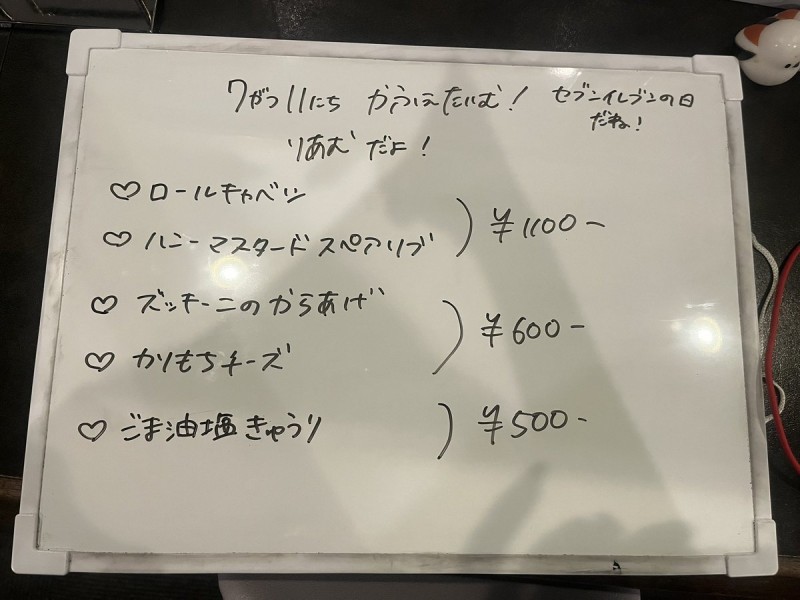 7がつ11にち かふぇたいむ! セブンイレブンの日
だね!
りあむだよ!
♡ロールキャベツ
♡ハニーマスタードスペアリブ
¥1100-
♡ズッキーニのからあげ
¥600-
♡かりもちチーズ
♡ごま油塩きゅうり
¥500-